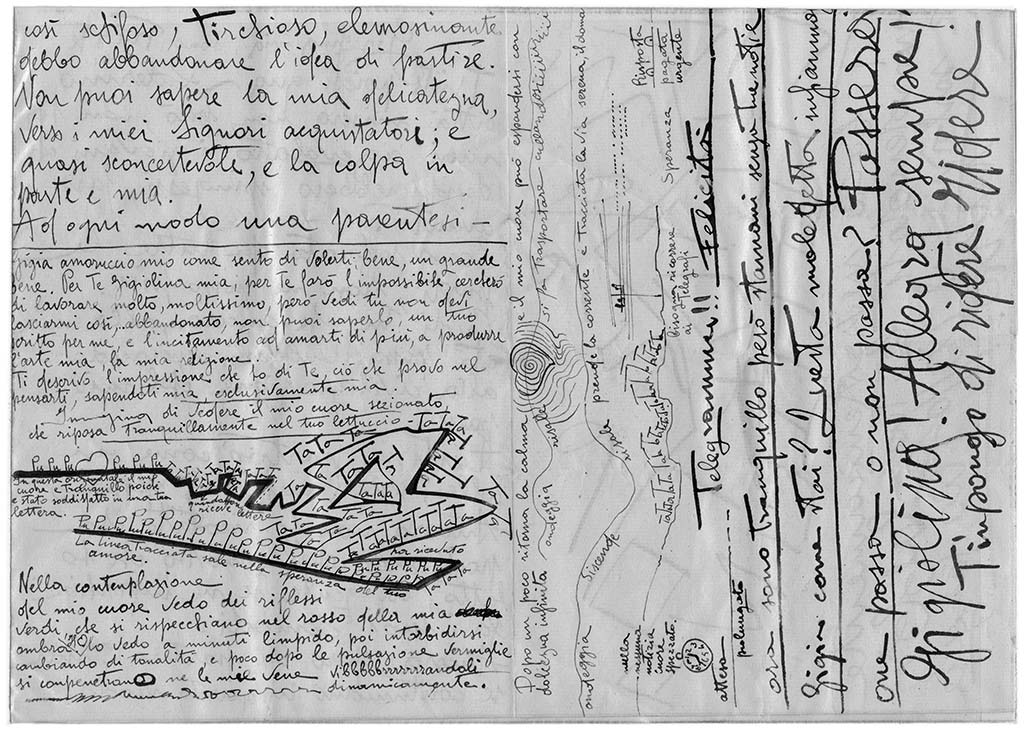 così schifoso, tirchioso, elemosinante
debbo abbandonare l'idea di partire.
Non puoi sapere la mia delicatezza,
verso i miei Signori acquitatori; è
quasi sconcertevole, e la colpa in
parte e mia.
Ad ogni modo una parentesi —
Gigia amoruccio mio come sento di volerti bene, un grande
bene. Per Te gigiolina mia, per Te farò l'impossibile, cercherò
di lavorare molto, moltissimo, però vedi tu non devi
lasciarmi così, abbandonato, non puoi saperlo un tuo
scritto per me, e l'incitamento ad amarti di più, a produrre
l'arte mia, la mia religione.
Ti descrivo l'impressione che fo di Te, ciò che provo nel
pensarti, sapendoti mia, esclusivamente mia.
Immagina di vedere il mio cuore sezionato,
che riposa tranquillamente nel tuo lettuccio - TaTaTa
PuPuPu PuPuPuPu
In questa orizzontale il mio
cuore e Tranquillo poiche
e stato soddisfatto in una tua
lettera.
riceve lettere
TaTaTa
PuPuPuPuPuPuPu
non riceduto
La linea tracciata sale nella speranza del tuo
amore.
TaTaTa
Nella contenplazione
del mio cuore vedo dei riflessi
verdi, che si rispecchiano nel rosso della mia
ambra. Lo vedo a minuti limpido, poi intorbidirsi
cambiando di tonalità, e poco dopo le pulsazione vermiglie
si conpenetrano ne le mie vene vibbbbbrrrrrrandoli
dinamicamente.
Dopo un poco ritorna la calma e il mio cuore può espandersi con
dolcezza infinita
ondeggia risale
si fa Trasportare
ondeggia discende risale
prende la corrente e tracciata la via serena, il doma
nella
nessuna
notizia
cuore
spezzato.
TaTaTaTaTa
bisogna ricorrere
ai
telegrafi
Speranza
Risposta
pagata
urgente
attesa prolungata
Telegramma!!! Felicità
ora sono tranquillo però stamani senza tue notizie
Gigina come stai? Questa maledetta influenza
one passa o non passa? Tossera
Gigiolina! Allegra sempre!
Ti impongo di ridere! Ridere